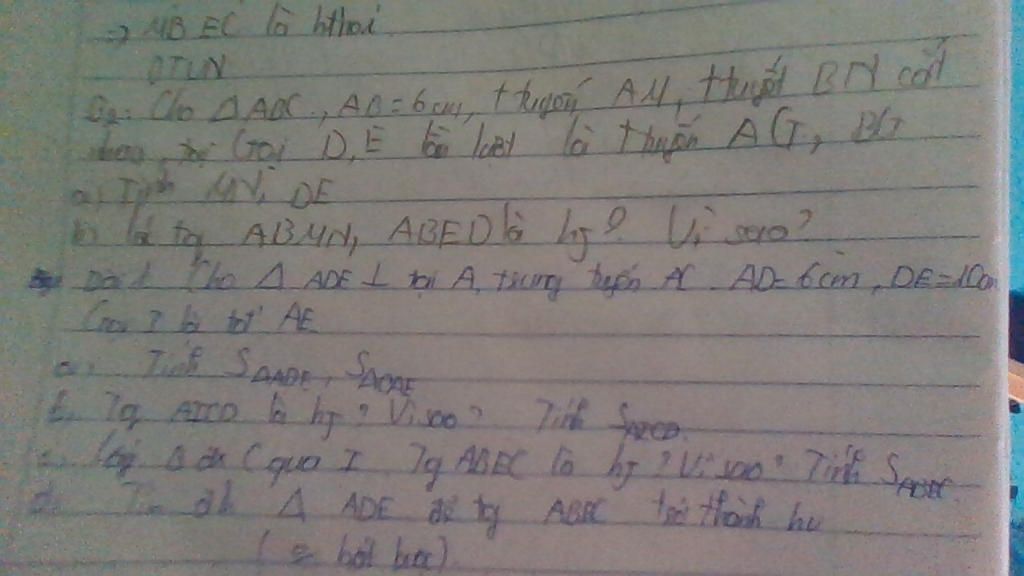 => MBEC là hthoi
BTVN
Cho Δ ABC, AB = 6cm, AM, BN cắt
D, E lần lượt là AG, BG
a, Tính MN, DE
b, tg ABMN, ABED là hj? Vì sao?
Bài 1 Cho Δ ADE ⊥ tại A, trung tuyến AC. AD = 6cm, DE = 10cm
Gọi I là tđ AE
a. Tính SΔADE,
b. Tg AICD là hj? Vì sao? Tính SAICD
c. B đx C qua I. Tg ABEC là hj? Vì sao? Tính SABEC
d. Tìm đk Δ ADE để tg ABEC trở thành hv